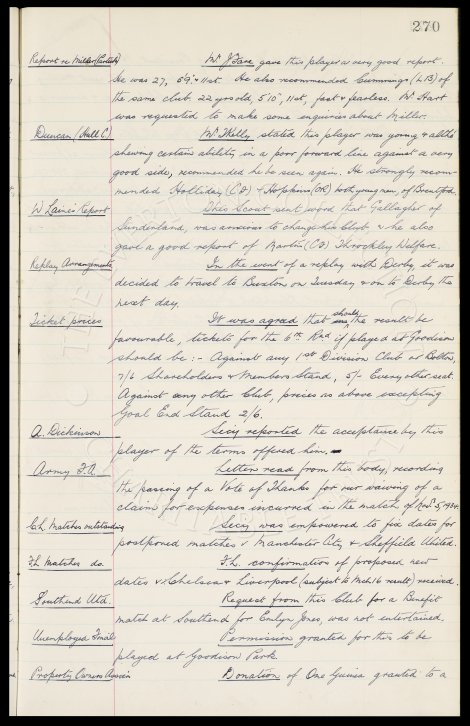 270
Report re Miller (Partick) Mr J Fare gave this player a very good report.
He was 27, 5'9" & 11st. He also recommended Cummings (LB) of
the same club. 22 yrs old, 5'10", 11st, fast & fearless. Mr Hart
was requested to make some enquiries about Miller.
Duncan (Hull C) Mr Kelly stated this player was young & altho'
shewing certain ability in a poor forward line against a very
good side, recommended he be seen again. He strongly recom-
mended Holliday (CF) & Hopkins (OR) both young men of Brentford.
W Laine's Report This Scout sent word that Gallagher of
Sunderland, was anxious to change his Club, & he also
gave a good report of Martin (CF) Throckley Welfare.
Replay Arrangements In the event of a replay with Derby, it was
decided to travel to Buxton on Tuesday & on to Derby the
next day.
Ticket prices It was agreed that should the result be
favourable, tickets for the 6th Rnd if played at Goodison
should be :- Against any 1st Division Club or Bolton,
7/6 Shareholders & Members Stand, 5/- Every other seat.
Against any other Club, prices as above excepting
Goal End Stand 2/6.
A. Dickinson Secy reported the acceptance by this
player of the terms offered him.
Army F.A. Letter read from this body, recording
the passing of a Vote of Thanks for our waiving of a
claim for expenses incurred in the match of Novr 5, 1934.
C.L. Matches outstanding Secy was empowered to fix dates for
postponed matches v Manchester City & Sheffield United.
F.L. Matches do. F.L. confirmation of proposed new
dates v. Chelsea & Liverpool (subject to Mch 16 result) received.
Southend Utd. Request from this Club for a Benefit
match at Southend for Emlyn Jones, was not entertained.
Unemployed Final Permission granted for this to be
played at Goodison Park.
Property Owners Assocn Donation of One Guinea granted to a